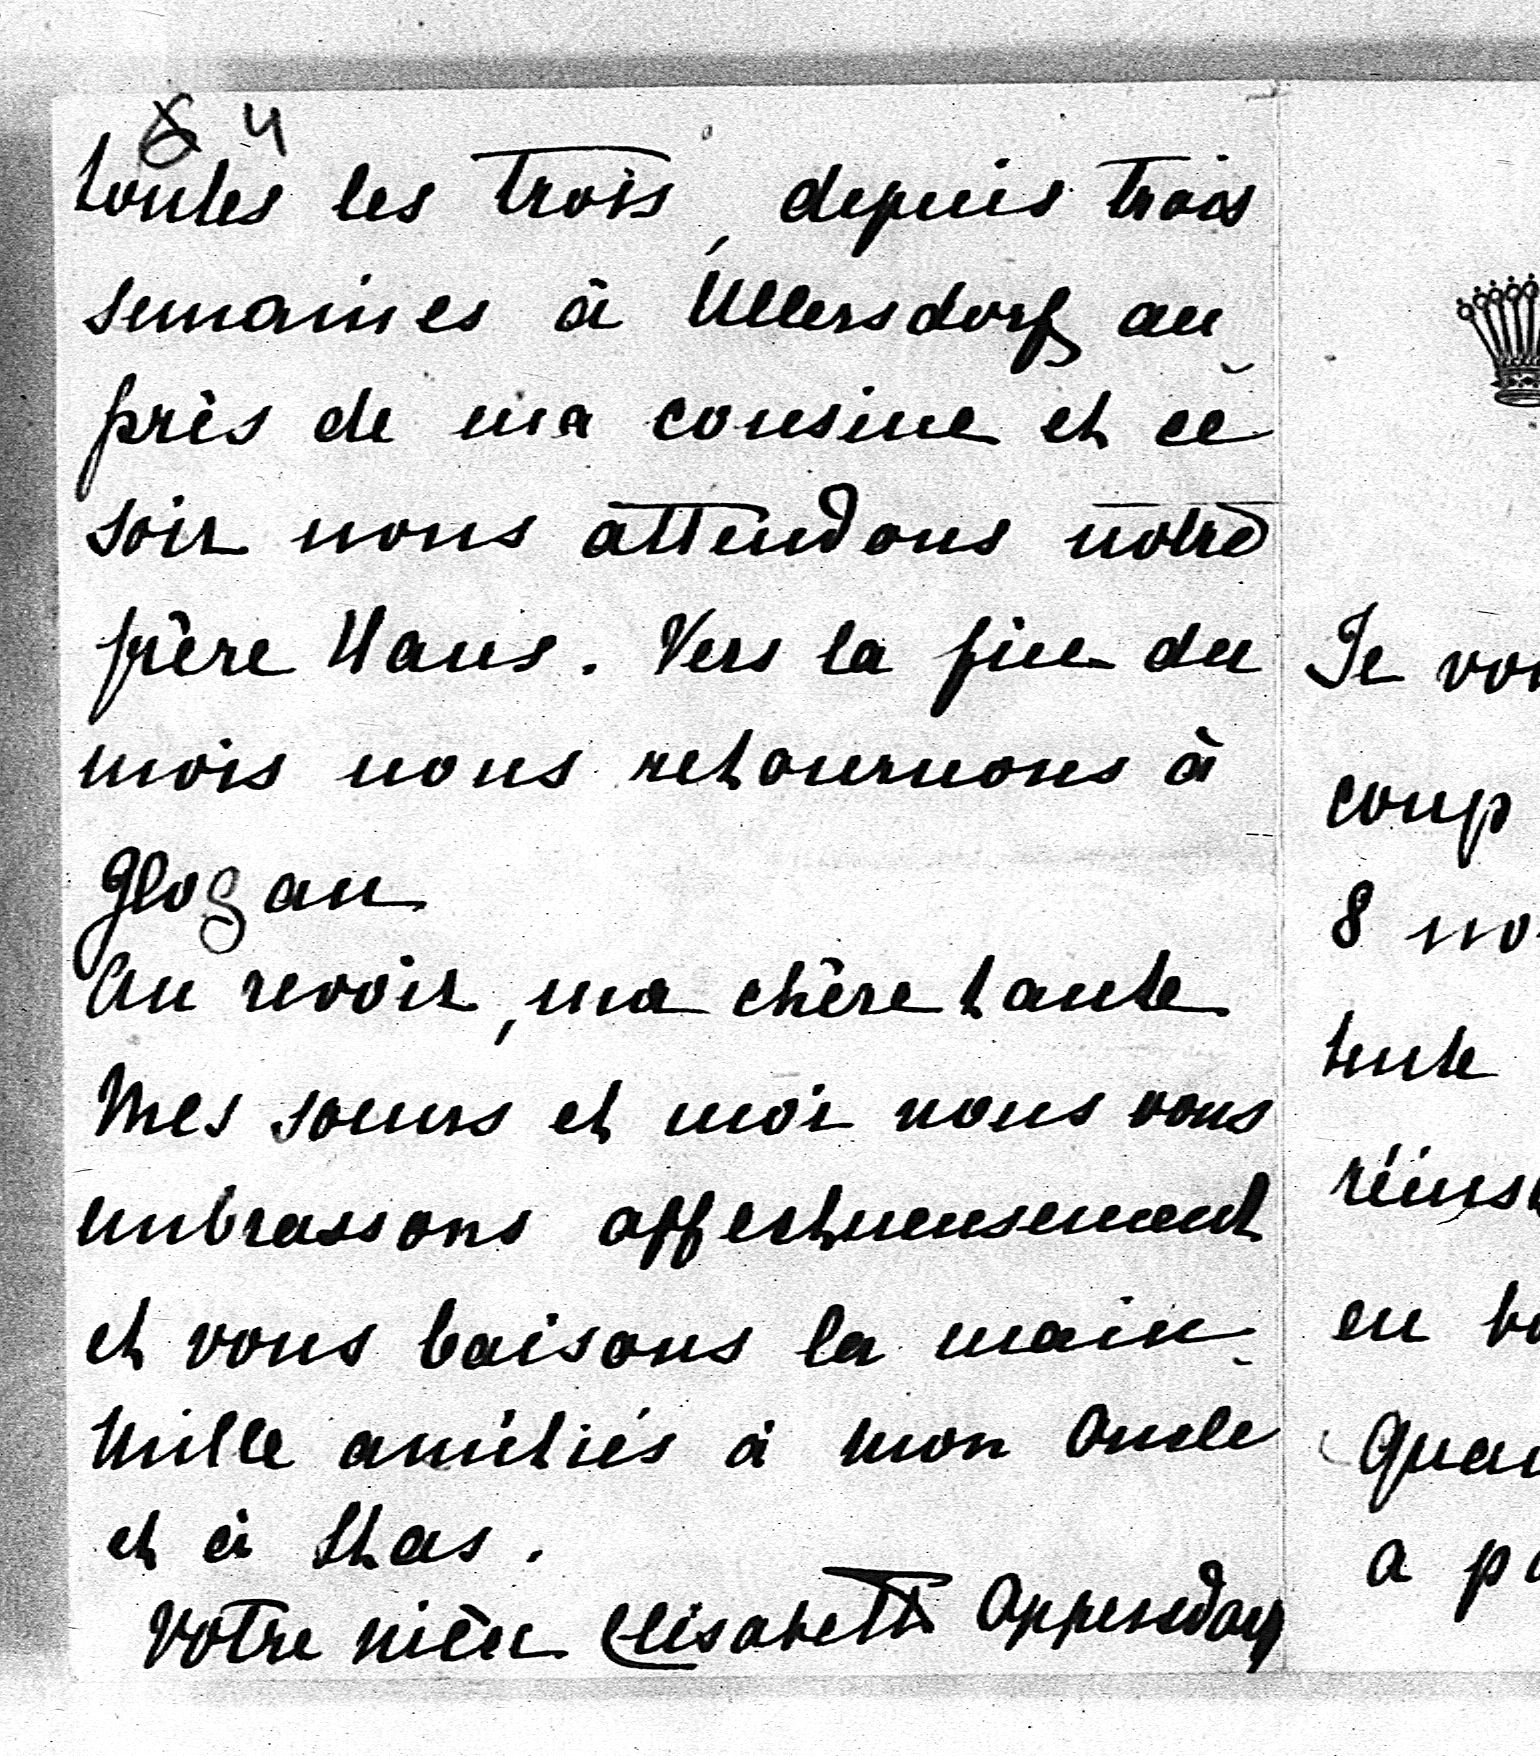 4
toutes les trois, depuis trois
semaines à Ullersdorf au
près de ma cousine et ce
soir nous attendons notre
frère Hans. Vers la fin du
mois nous retournons à
Glogau
Au revoir, ma chère tante
Mes soeurs et moi nous vous
embrassons affectueusement
et vous baisons la main.
Mille amitiés à mon oncle
et à Stas.
Votre nièce Elisabeth Oppersdorf
Je
coup
8
tente
en
a